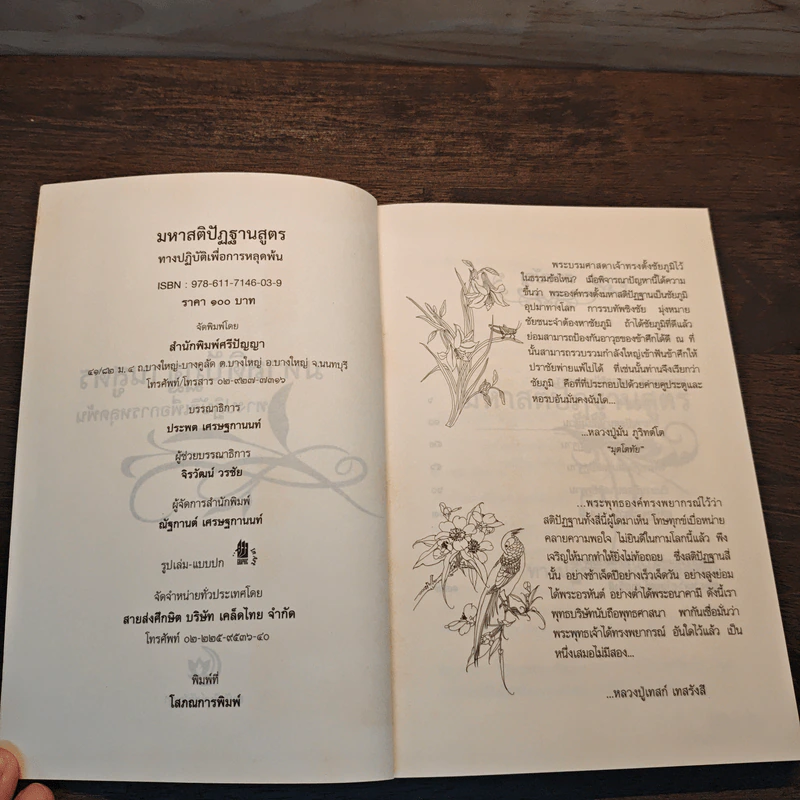 มหาสติปัฏฐานสูตร
ทางปฏิบัติเพื่อการหลุดพ้น
ISBN : 978-611-7146-03-9
ราคา ๑๐๐ บาท
จัดพิมพ์โดย
สำนักพิมพ์ศรีปัญญา
๔๑/๘๒ ม. ๔ ถ.บางใหญ่-บางคูลัด ต.บางใหญ่ อ.บางใหญ่ จ.นนทบุรี
โทรศัพท์/โทรสาร ๐๒-๙๒๗-๗๓๑๖
บรรณาธิการ
ประพต เศรษฐกานนท์
ผู้ช่วยบรรณาธิการ
จิรวัฒน์ วรชัย
ผู้จัดการสำนักพิมพ์
ณัฐกานต์ เศรษฐกานนท์
รูปเล่ม-แบบปก
จัดจำหน่ายทั่วประเทศโดย
สายส่งศึกษิต บริษัท เคล็ดไทย จำกัด
โทรศัพท์ ๐๒-๒๒๕-๙๕๓๖-๔๐
พิมพ์ที่
โสภณการพิมพ์
พระบรมศาสดาเจ้าทรงตั้งชัยภูมิไว้
ในธรรมข้อไหน? เมื่อพิจารณาปัญหานี้ได้ความ
ขึ้นว่า พระองค์ทรงตั้งมหาสติปัฏฐานเป็นชัยภูมิ
อุปมาทางโลก การรบทัพชิงชัย มุ่งหมาย
ชัยชนะจำต้องหาชัยภูมิ ถ้าได้ชัยภูมิที่ดีแล้ว
ย่อมสามารถป้องกันอาวุธของข้าศึกได้ดี ณ ที่
นั้นสามารถรวบรวมกำลังใหญ่เข้าฟันข้าศึกให้
ปราชัยพ่ายแพ้ไปได้ ที่เช่นนั้นท่านจึงเรียกว่า
ชัยภูมิ คือที่ที่ประกอบไปด้วยค่ายคูประตูและ
หอรบอันมั่นคงฉันใด...
...หลวงปู่มั่น ภูริทตฺโต
"มุตโตทัย"
...พระพุทธองค์ทรงพยากรณ์ไว้ว่า
สติปัฏฐานทั้งสี่นี้ผู้ใดมาเห็น โทษทุกข์เบื่อหน่าย
คลายความพอใจ ไม่ยินดีในกามโลกนี้แล้ว พึง
เจริญให้มากทำให้ยิ่งไม่ท้อถอย ซึ่งสติปัฏฐานสี่
นั้น อย่างช้าเจ็ดปีอย่างเร็วเจ็ดวัน อย่างสูงย่อม
ได้พระอรหันต์ อย่างต่ำได้พระอนาคามี ดังนี้เรา
พุทธบริษัทนับถือพุทธศาสนา พากันเชื่อมั่นว่า
พระพุทธเจ้าได้ทรงพยากรณ์ อันใดไว้แล้ว เป็น
หนึ่งเสมอไม่มีสอง...
...หลวงปู่เทสก์ เทสรังสี